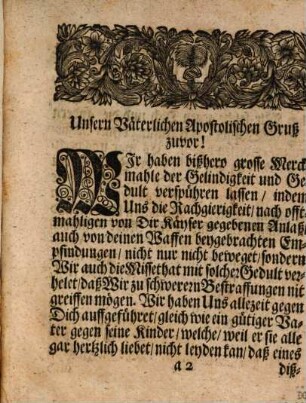 Unsern Väterlichen Apostolischen Gruß
zuvor!
WIr haben bißhero grosse Merck
mahle der Gelindigkeit und Ge
dult verspühren lassen / indem
Uns die Rachgierigkeit / nach offt
mahligen von Dir Käyser gegebenen Anlaß /
auch von deinen Waffen beygebrachten Em
pfindungen / nicht nur nicht beweget / sondern
Wir auch die Missethat mit solcher Gedult ver-
helet / daß Wir zu schwerern Bestraffungen nit
greiffen mögen. Wir haben Uns allezeit gegen
Dich auffgeführet / gleich wie ein gütiger Va
ter gegen seine Kinder / welche / weil er sie alle
gar hertzlich liebet / nicht leyden kan / daß eines
a 2
diß-